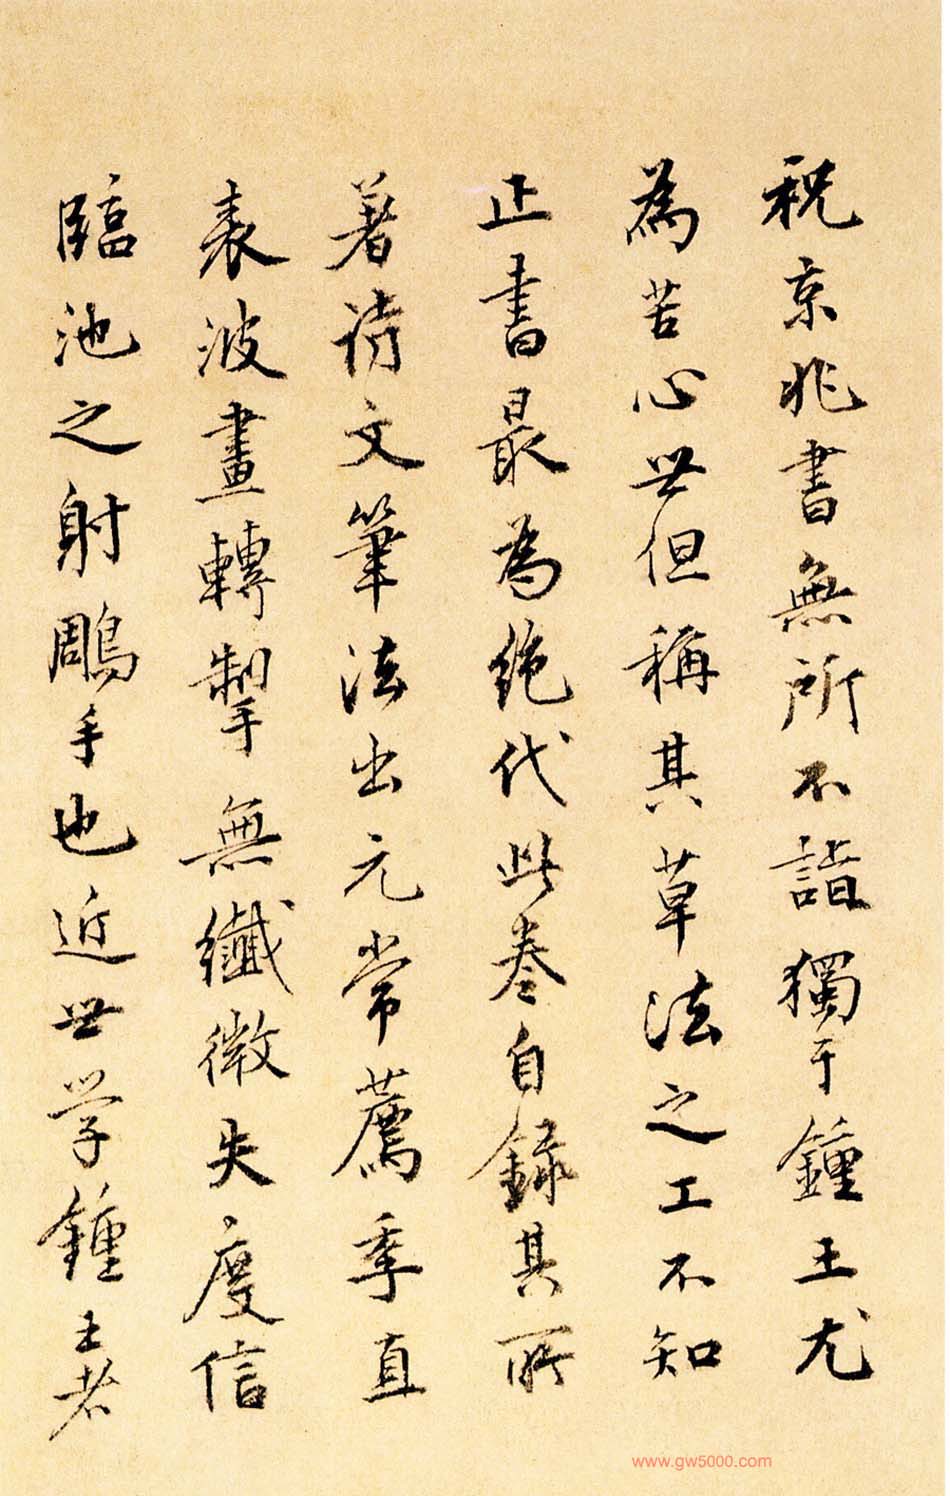 祝京兆書無所不詣獨于鍾王尤
為苦心世但稱其草法之工不知
正書最為絶代此卷自録其所
著詩文筆法出元常薦季直
表波畫轉掣無纖微失度信
臨池之射鵰手也近世学鍾王者
www.gw5000.com